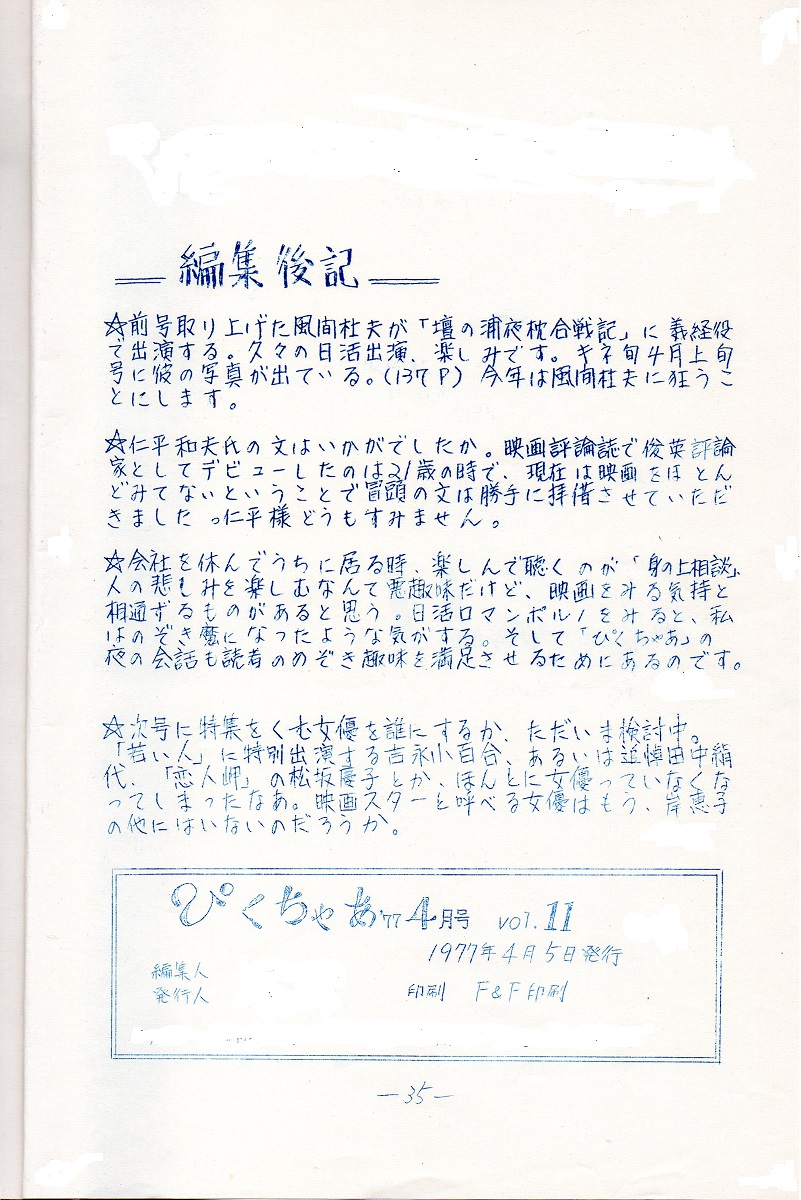 編集後記
☆前号取り上げた風間杜夫が「壇の浦夜枕合戦記」に義経役
で出演する。久々の日活出演、楽しみです。キネ旬4月上旬
号に彼の写真が出ている。(137P) 今年は風間杜夫に狂うこ
とにします。
☆仁平和夫氏の文はいかがでしたか。映画評論誌で俊英評論
家としてデビューしたのは21歳の時で、現在は映画をほとん
どみてないということで冒頭の文は勝手に拝借させていただ
きました。仁平様どうもすみません。
☆会社を休んでうちに居る時、楽しんで聴くのが「身の上相談」
人の悲しみを楽しむなんて悪趣味だけど、映画をみる気持と
相通ずるものがあると思う。日活ロマンポルノをみると、私
はのぞき魔になったような気がする。そして「ぴくちゃあ」の
夜の会話も読者ののぞき趣味を満足させるためにあるのです。
☆次号に特集をくむ女優を誰にするか、ただいま検討中。
「若い人」に特別出演する吉永小百合、あるいは追悼田中絹
代、「恋人岬」の松坂慶子とか、ほんとに女優っていなくな
ってしまったなあ。映画スターと呼べる女優はもう、岸恵子
の他にはいないのだろうか。
ぴくちゃあ'77 4月号 VOL.11
1977年4月5日発行
編集人
発行人 印刷 F&F印刷
―35―